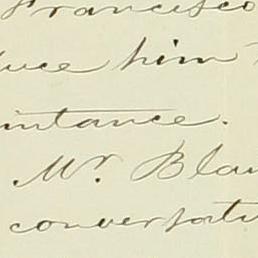 Francisco
uce him
intance.
Mr. Blan
conversati